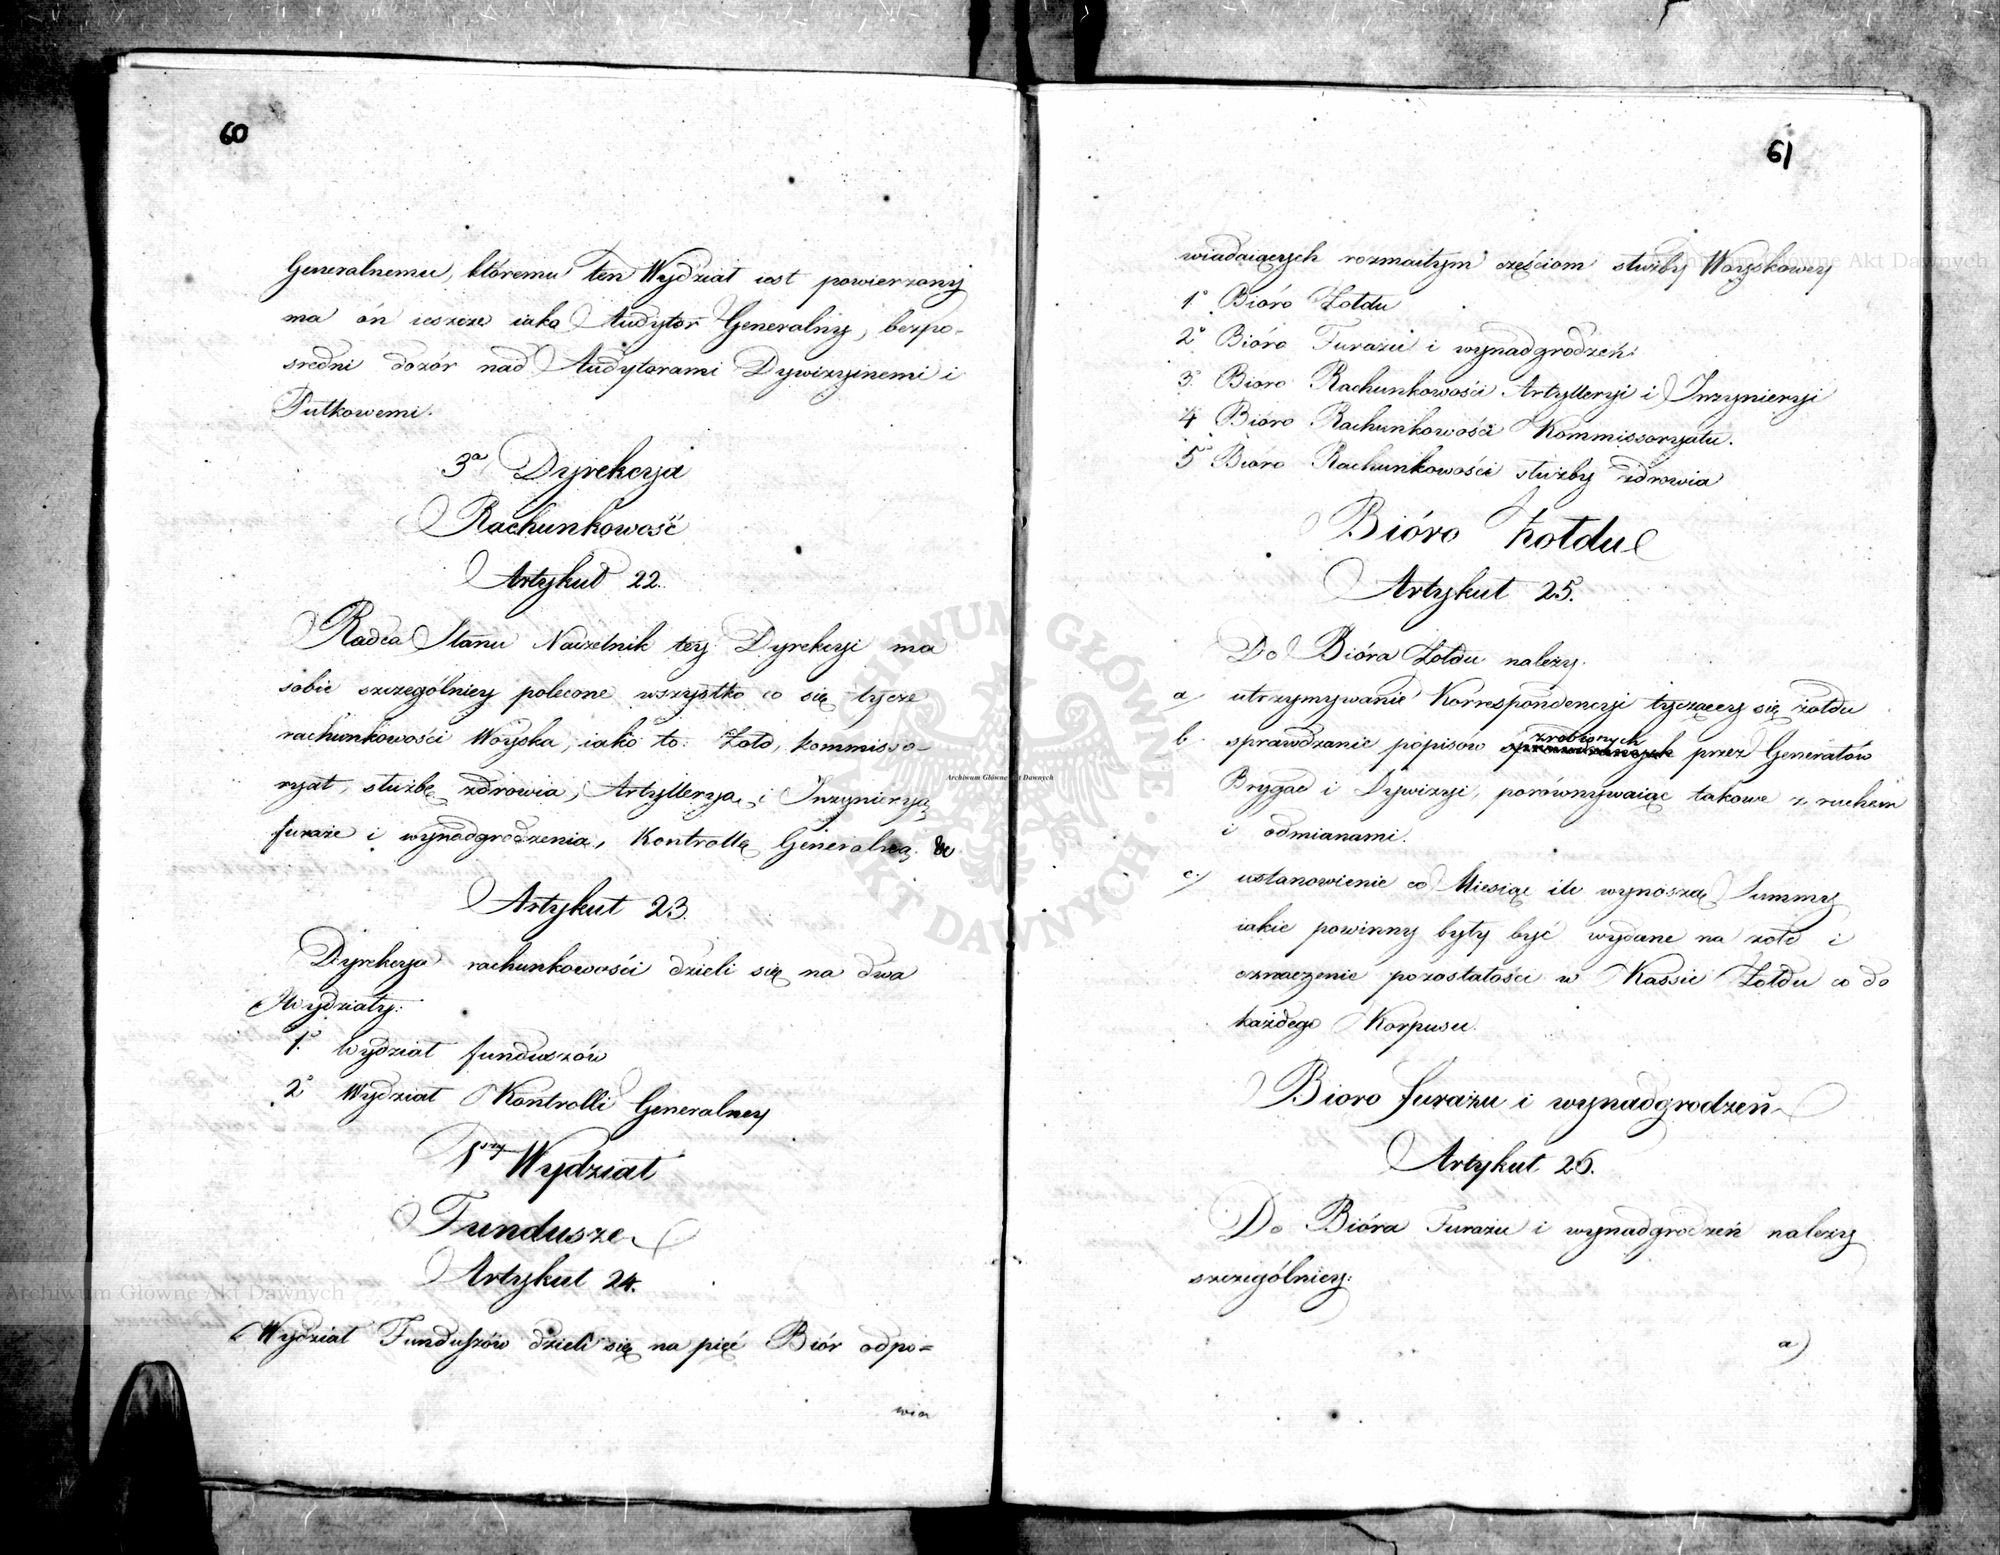 60
Generalnemu, któremu ten Wydział iest powierzony
ma ón ieszcze iako Audytor Generalny, bezpo-
sredni dozór nad Audytorami Dywizyinemi i
Pułkowemi.
3a Dyrekcya
Rachunkowość
Artykuł 22.
Radca Stanu Naczelnik tey Dyrekcyi ma
sobie szczególniey polecone wszystko co się tycze
rachunkowości Woyska, iako to: Żołd, kommissa-
ryat, służbę zdrowia, Artylleryą, i Inżynieryą
furaże i wynadgrodzenia, Kontrollę Generalną &c
Artykuł 23.
Dyrekcya rachunkowości dzieli się na dwa
Wydziały:
1o Wydział funduszów
2o Wydział Kontrolli Generalney
1szy Wydział
Fundusze
Artykuł 24.
Wydział Funduszów dzieli się na pięć Biór odpo=
wia
61
wiadaiących rozmaitym częściom służby Woyskowey
1o Bióro Żołdu
2o Bióro Furażu i wynadgrodzeń
3o Bióro Rachunkowości Artylleryi i Inżynieryi
4 Bióro Rachunkowości Kommissaryatu.
5o Bióro Rachunkowości służby zdrowia
Bióro Żołdu
Artykuł 25.
Do Bióra Żołdu należy.
a utrzymywanie Korrespondencyi tyczącey się żołdu
b sprawdzanie popisów zrobionych przez Generałów
Brygad i Dywizyi, porównywaiąc takowe z ruchem
i odmianami.
c.) ustanowienie co Miesiąc ile wynoszą Summy
iakie powinny były być wydane na żołd i
oznaczenie pozostałości w Kassie Żołdu co do
każdego Korpusu.
Bioro furażu i wynadgrodzeń
Artykuł 26.
Do Bióra Furażu i wynadgrodzeń należy
szczególniey:
a)
Archiwum Główne Akt Dawnych
Archiwum Główne Akt Dawnych
Archiwum Główne Akt Dawnych
ARCHIWUM GŁÓWNE AKT DAWNYCH